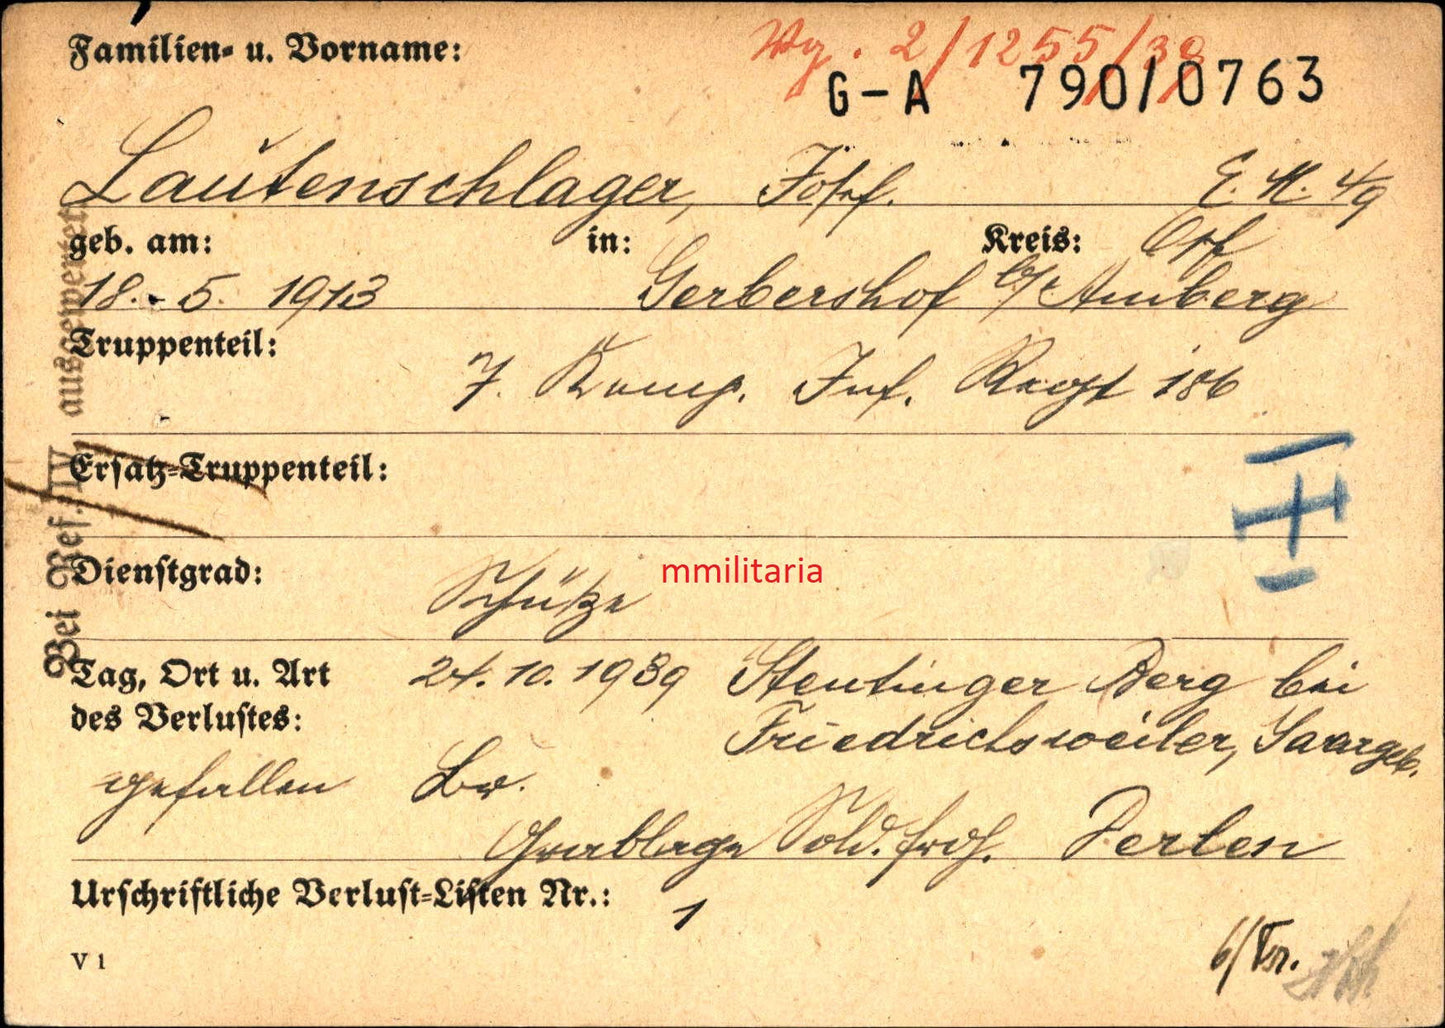 Familien- u. Vorname:
2/1255/38
G-A 790/0763
Lautenschlager, Josef.
E. M. 49
geb. am: in: Kreis:
18.-5. 1913 Gerbershof b/ Amberg
Truppenteil:
7. Komp. Inf. Regt 186
Ersatz-Truppenteil:
Dienstgrad:
Schütze
mmilitaria
Tag, Ort u. Art 24.10.1939 Steutinger Berg bei
des Verlustes: Friedrichsweiler, Saargeb.
gefallen
Grablage Sold. frdf. Perlen
Urschriftliche Verlust-Listen Nr.: 1
V 1
Bei Ref. IV ausgewertet